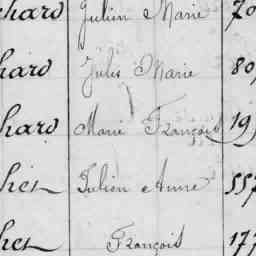 chard Julien Marie 70
hard Jules Marie 80
hard Marie François 19
hes Julien Anne 557
hes François 177